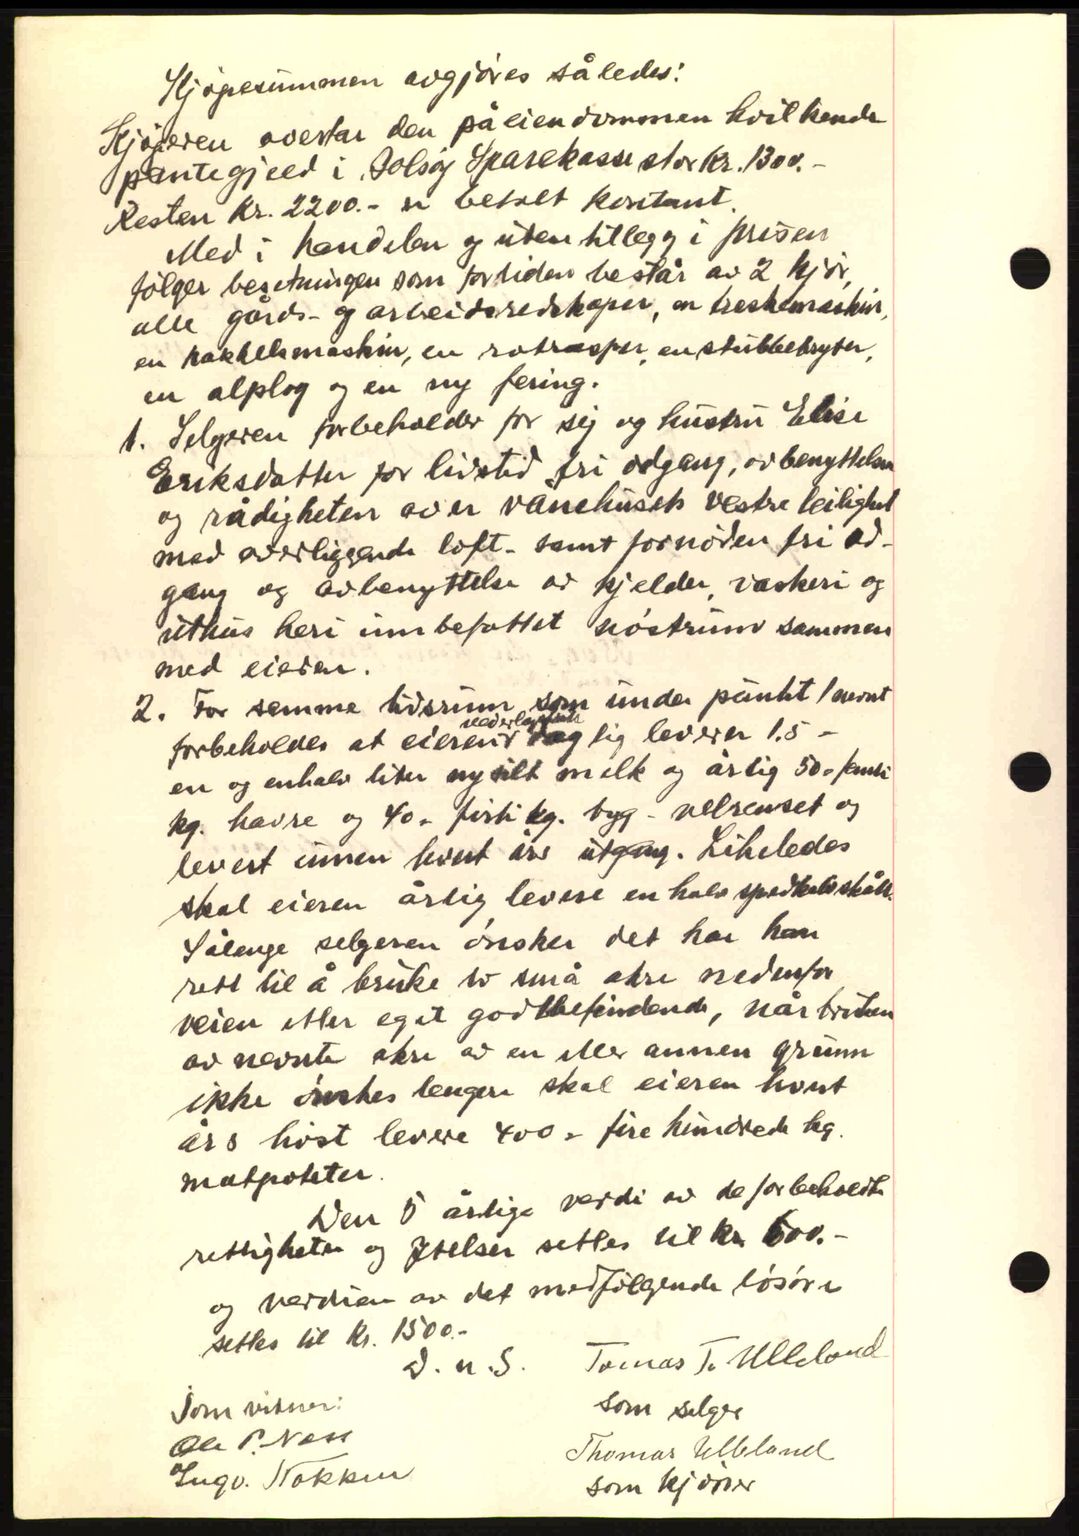 Kjøpesummen avgjøres således:
Kjøperen overtar den på eiendommen hvilkende
pantegjeld i Bolsøy Sparekasse stor kr. 1300.-
Resten kr. 2200.- er betalt kontant.
Med i handelen og uten tillegg i prisen
følger besetningen som fortiden består av 2 kjør,
alle gårds- og arbeidsredskaper, en treskemaskin,
en hakkelsmaskin, en rotrasper, en stubbebryter,
en alplog og en ny fering.
1. Selgeren forbeholder for sej og hustru Elise
Eriksdatter for livstid fri adgang, avbenyttelse
og rådigheten over vånehusets vestre leilighet
med overliggende loft - samt fornøden fri ad-
gang og avbenyttelse av kjelder, vaskeri og
uthus heri innbefattet nøstrum sammen
med eieren.
2. For samme tidsrum som under punkt 1 nevnt
forbeholdes at eieren vederlagsfritt daglig leverer 1.5 -
en og enhalv liter nysilt melk og årlig 50 - femti
kg. havre og 40 - førti kg. byg - velrenset og
levert innen hvert års utgang. Likeledes
skal eieren årlig levere en halv spedkalvskått.
Sålenge selgeren ønsker det har han
rett til å bruke to små akre nedenfor
veien etter eget godtbefindende, når bruken
av nevnte akre av en eller annen grunn
ikke ønskes lenger skal eieren hvert
års høst levere 400 - fire hundrede kg.
matpoteter.
Den 5 årlige verdi av de forbeholdte
rettigheter og ytelser settes til kr. 600.-
og verdien av det medfølgende løsøre
settes til kr. 1500.-
D. u. S. Tomas T. Ulleland
Som vitner: som selger
Ole P. Ness Thomas Ulleland
Ingv. Nakken som kjøper